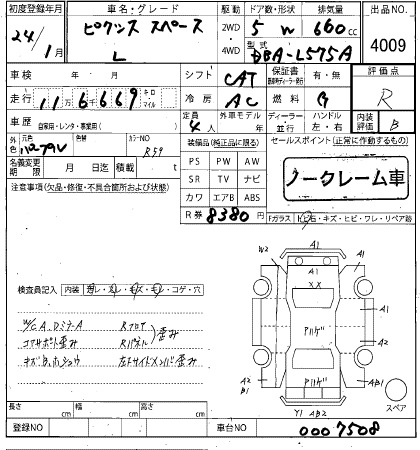 初度登録年月 車名・グレード 駆動 ドア数・形状 排気量 出品NO
24年 1月 ピクシス スペース L 2WD・4WD 5 W 660cc 4009
型式 DBA-L575A
車検 年 月 シフト CAT 保証書 有・無 評価点
走行 116,669 キロ マイル 冷房 AC 燃料 G R
車歴 自家用・レンタ・事業用( ) 定員 4人 外車モデル 年 ディーラー・並行 ハンドル 左・右 内装評価 B
外色 元色 色替 カラーNO R59
装備品(純正品に限る) セールスポイント(正常に作動するもの)
名義変更期限 月 日迄 積載 t
PS PW AW
SR TV ナビ
カワ エアB ABS
ノークレーム車
注意事項(欠品・修復・不具合箇所および状態)
R券 8380円
Fガラス 飛石・キズ・ヒビ・ワレ・リペア跡
検査員記入 内装 ヨゴレ・スレ・キズ・キレ・コゲ・穴
W/C A. Rフロア 歪み
コアサポート歪み Rパネル
キズ 左右サイドメンバー歪み
W2 A1 A1
A1
XX
A1
A2
A2 B1 AB1
Y1 AB2
スペア
長さ cm 幅 cm 高さ cm
登録NO 車台NO 0007508